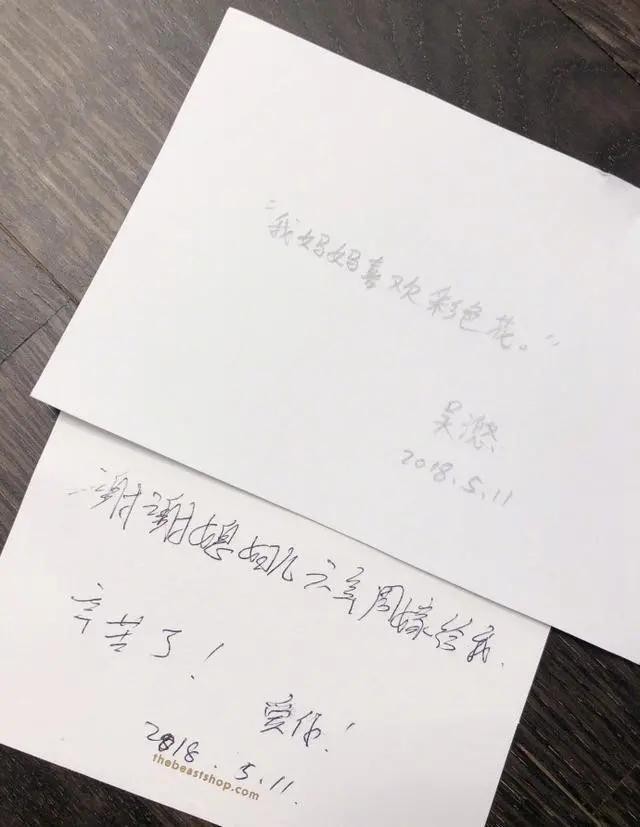 “我妈妈喜欢彩色花。”
吴
2018.5.11
谢谢媳妇儿周嫁给我.
辛苦了!
爱你!
2018.5.11.
thebeastshop.com